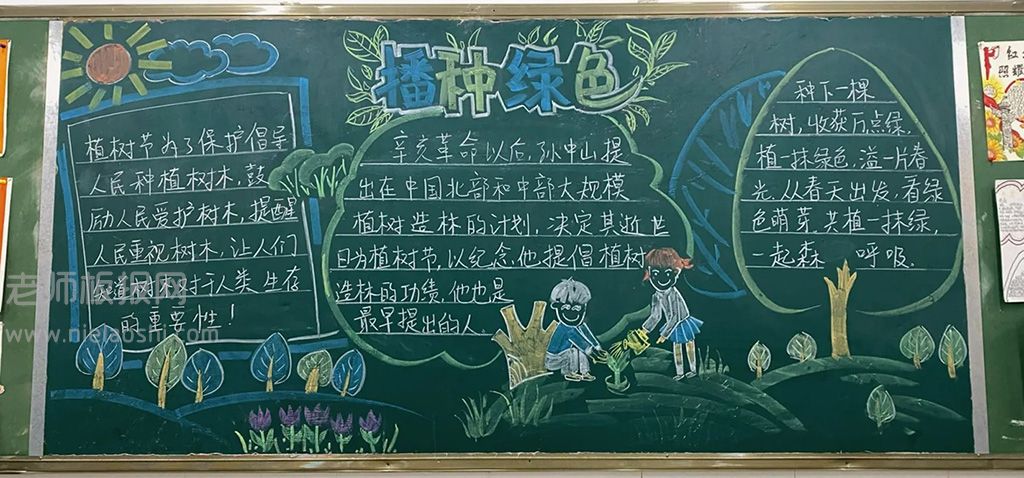 播种绿色
植树节为了保护倡导
人民种植树木,鼓
励人民爱护树木,提醒
人民重视树木,让人们
知道树木对于人类生存
的重要性!
辛亥革命以后,孙中山提
出在中国北部和中部大规模
植树造林的计划,决定其逝世
日为植树节,以纪念他提倡植树
造林的功绩,他也是
最早提出的人.
种下一棵
树,收获万点绿,
植一抹绿色,溢一片春
光.从春天出发,看绿
色萌芽.共植一抹绿,
一起森 呼吸.
老师板报网
www.nielaoshi.com
红
照耀